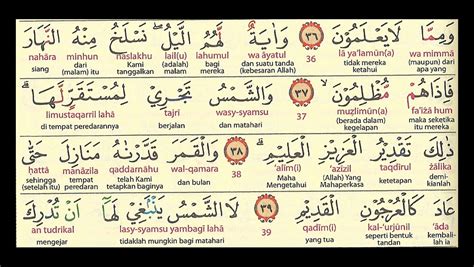 وَمِمَّا لَا يَعْلَمُوْنَ ٣٦ وَاٰيَةٌ لَّهُمُ الَّيْلُ ۖ نَسْلَخُ مِنْهُ النَّهَارَ
wa mimmā lā ya‘lamūn(a) 36 wa āyatul lahumul lail(u) naslakhu minhun nahāra
(maupun) dari apa yang tidak mereka ketahui dan suatu tanda (kebesaran Allah) bagi mereka (adalah) malam Kami tanggalkan dari (malam) itu siang
فَاِذَا هُمْ مُّظْلِمُوْنَ ۙ ٣٧ وَالشَّمْسُ تَجْرِيْ لِمُسْتَقَرٍّ لَّهَا ۗ
fa'iżā hum muẓlimūn(a) 37 wasy-syamsu tajrī limustaqarril lahā
maka seketika itu mereka (berada dalam) kegelapan dan matahari berjalan di tempat peredarannya
ذٰلِكَ تَقْدِيْرُ الْعَزِيْزِ الْعَلِيْمِ ۗ ٣٨ وَالْقَمَرَ قَدَّرْنٰهُ مَنَازِلَ حَتّٰى
żālika taqdīrul ‘azīzil ‘alīm(i) 38 wal-qamara qaddarnāhu manāzila ḥattā
demikianlah ketetapan (Allah) Yang Mahaperkasa Maha Mengetahui dan bulan telah Kami tetapkan baginya tempat peredaran sehingga (setelah itu)
عَادَ كَالْعُرْجُوْنِ الْقَدِيْمِ ٣٩ لَا الشَّمْسُ يَنْۢبَغِيْ لَهَآ اَنْ تُدْرِكَ
‘āda kal-‘urjūnil qadīm(i) 39 lasy-syamsu yambagī lahā an tudrikal
kembali-lah ia seperti bentuk tandan yang tua tidaklah mungkin bagi matahari mengejar